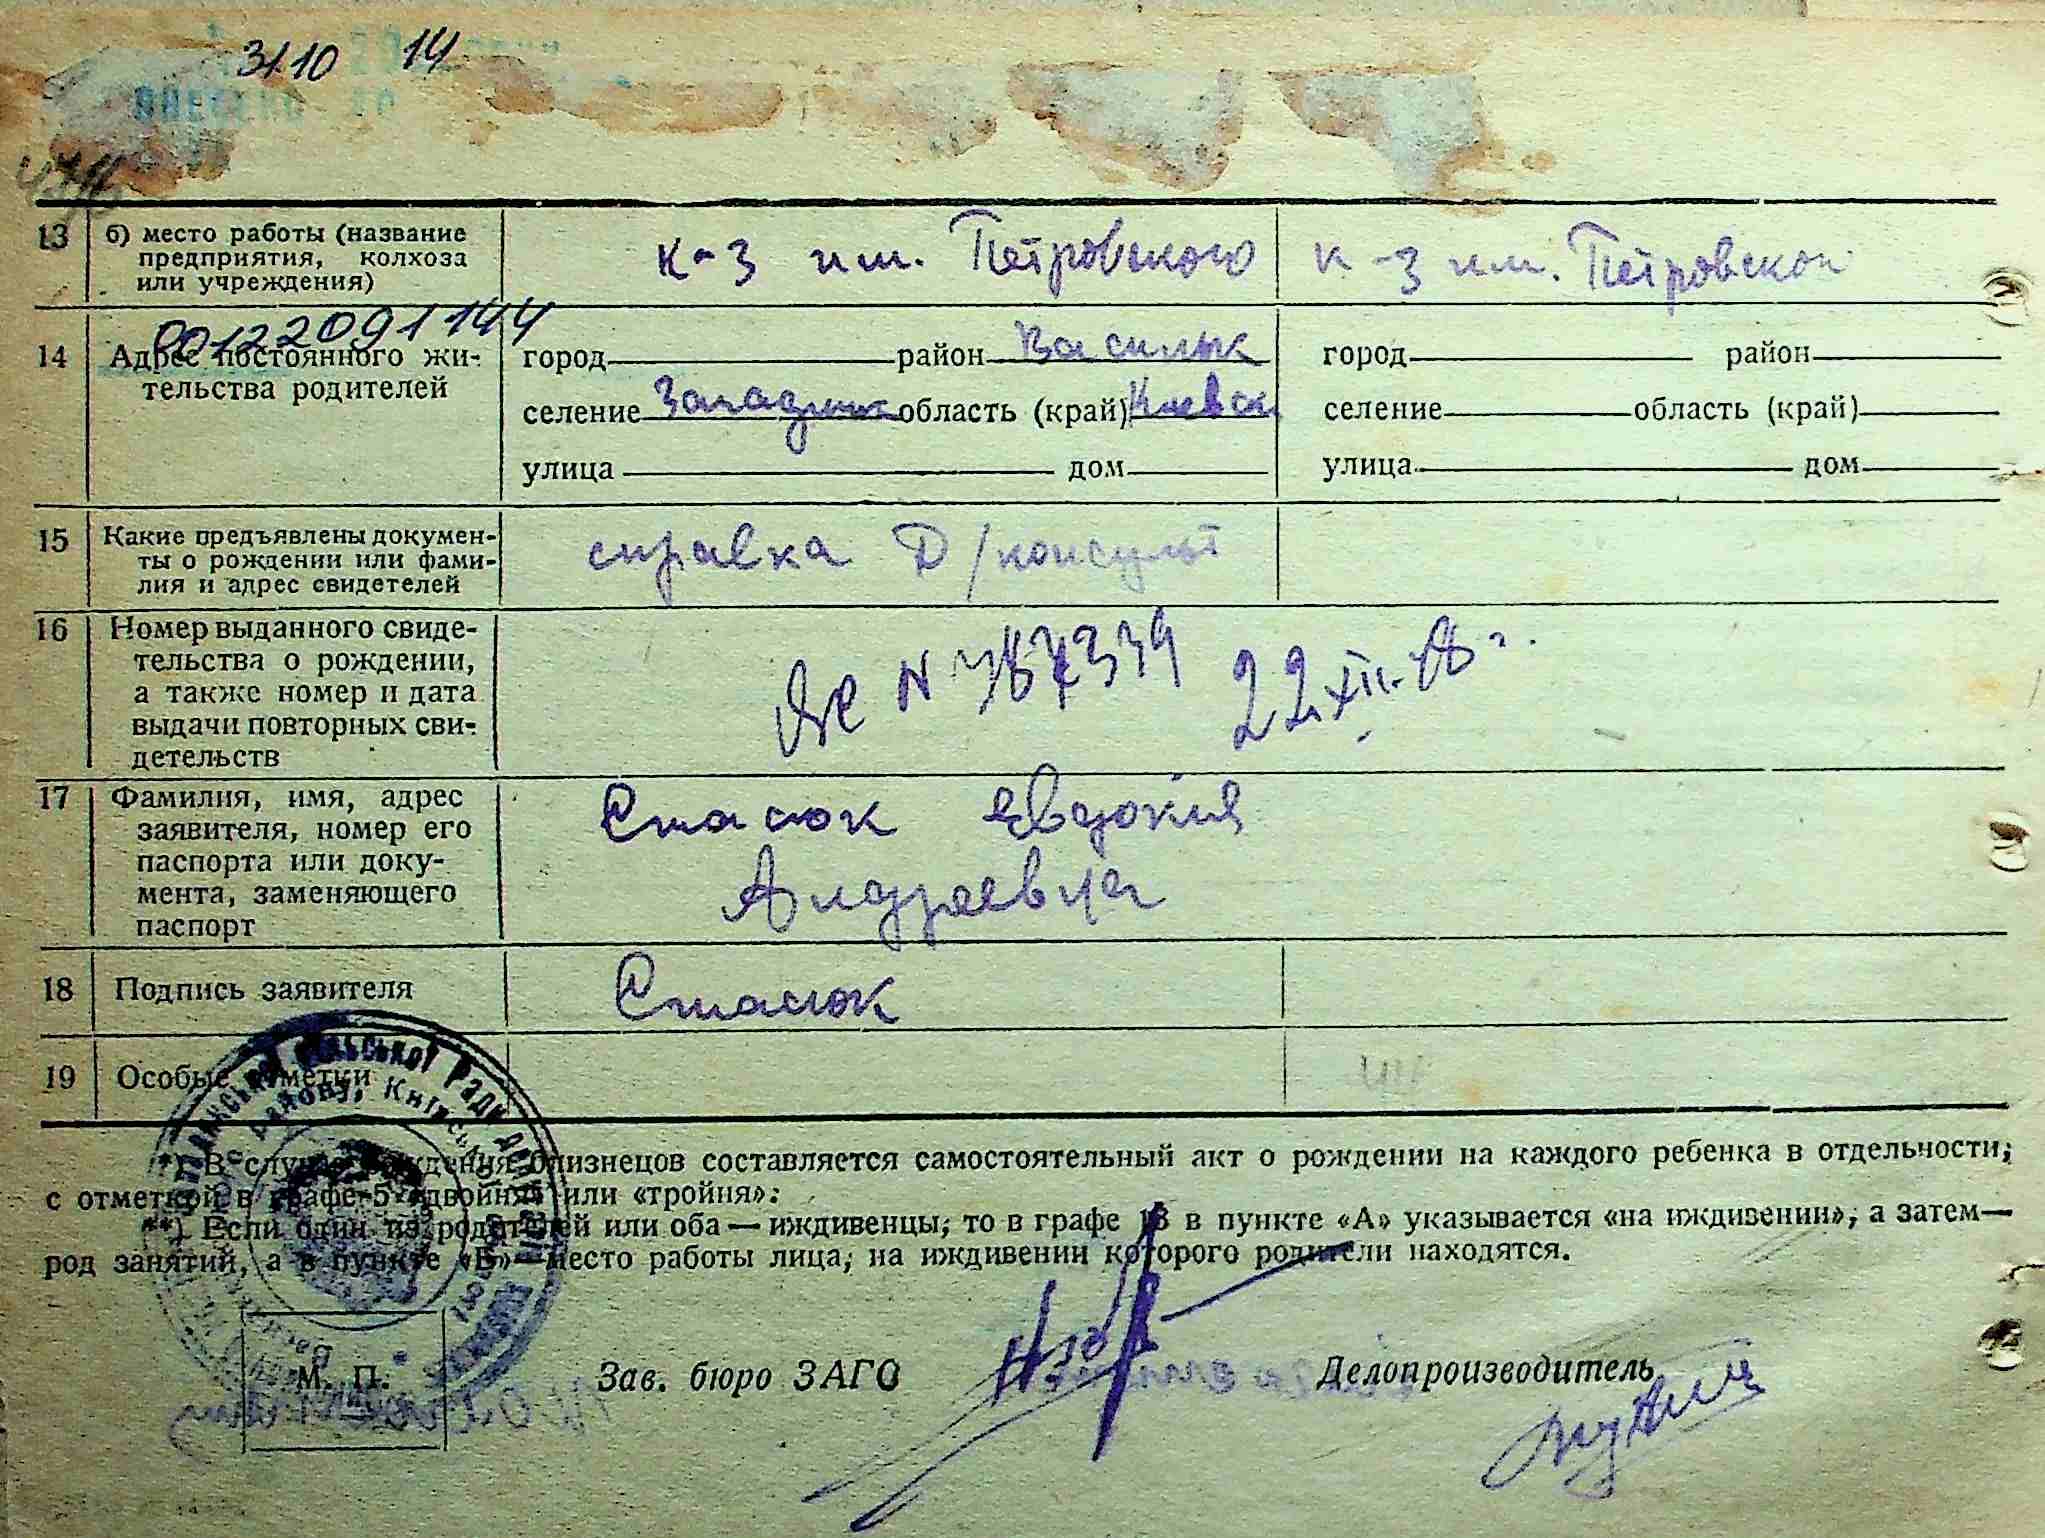 31.10 14
13 б) место работы (название предприятия, колхоза или учреждения)
к-з им. Петровского
к-з им. Петровской
00122091144
14 Адрес постоянного жительства родителей
город район Васильк
селение область (край) Киевск
улица дом
город район
селение область (край)
улица дом
15 Какие предъявлены документы о рождении или фамилия и адрес свидетелей
справка Д/консульт
16 Номер выданного свидетельства о рождении, а также номер и дата выдачи повторных свидетельств
N 787339 22 XII-48 г.
17 Фамилия, имя, адрес заявителя, номер его паспорта или документа, заменяющего паспорт
Стасюк Евдокия
Андреевна
18 Подпись заявителя
Стасюк
19 Особые отметки
*) В случае рождения близнецов составляется самостоятельный акт о рождении на каждого ребенка в отдельности,
с отметкой в графе 5 «двойня» или «тройня».
**) Если один из родителей или оба — иждивенцы, то в графе 13 в пункте «А» указывается «на иждивении», а затем—
род занятий, а в пункте «Б»—место работы лица, на иждивении которого родители находятся.
М. П.
Зав. бюро ЗАГС
Делопроизводитель